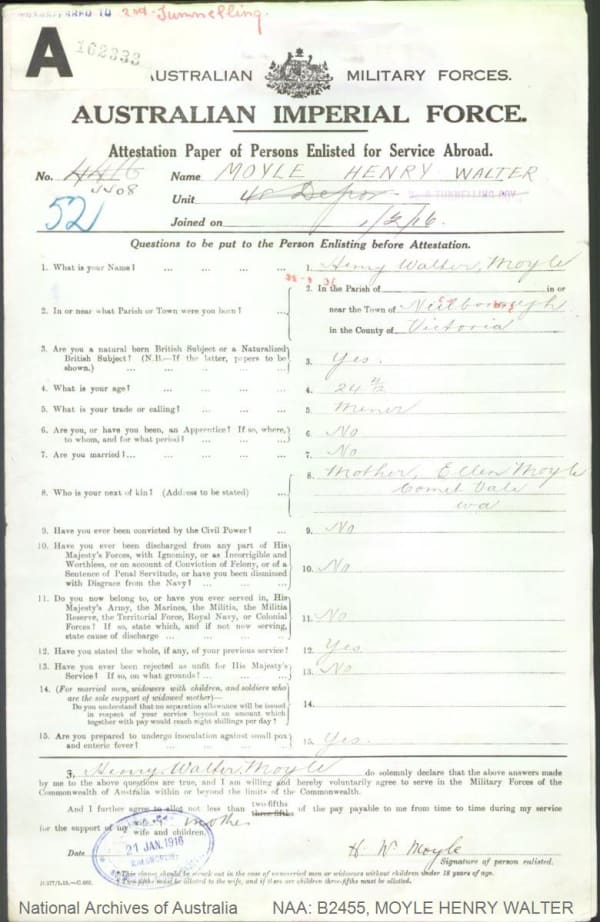 TRANSFERRED TO 2nd Tunnelling.
A
162333
AUSTRALIAN MILITARY FORCES.
AUSTRALIAN IMPERIAL FORCE.
Attestation Paper of Persons Enlisted for Service Abroad.
No. 4416 Name MOYLE HENRY WALTER
4408
Unit Depot TUNNELLING COY
52
Joined on 1/2/16
Questions to be put to the Person Enlisting before Attestation.
1. What is your Name? ... ... ... ... 1. Henry Walter Moyle
2. In or near what Parish or Town were you born? ... 2. In the Parish of in or
near the Town of
in the County of Victoria
3. Are you a natural born British Subject or a Naturalized
British Subject? (N.B.—If the latter, papers to be
shown.) ... ... ... ... 3. Yes.
4. What is your age? ... ... ... ... 4. 24
5. What is your trade or calling? ... ... ... 5. Miner
6. Are you, or have you been, an Apprentice? If so, where,
to whom, and for what period? ... ... ... 6. No
7. Are you married?... ... ... ... 7. No
8. Who is your next of kin? (Address to be stated) ... 8. Mother, Ellen Moyle
Comet Vale
WA
9. Have you ever been convicted by the Civil Power? ... 9. No
10. Have you ever been discharged from any part of His
Majesty's Forces, with Ignominy, or as Incorrigible and
Worthless, or on account of Conviction of Felony, or of a
Sentence of Penal Servitude, or have you been dismissed
with Disgrace from the Navy? ... ... ... 10. No
11. Do you now belong to, or have you ever served in, His
Majesty's Army, the Marines, the Militia, the Militia
Reserve, the Territorial Force, Royal Navy, or Colonial
Forces? If so, state which, and if not now serving,
state cause of discharge ... ... ... 11. No
12. Have you stated the whole, if any, of your previous service? 12. Yes
13. Have you ever been rejected as unfit for His Majesty's
Service? If so, on what grounds? ... ... 13. No
14. (For married men, widowers with children, and soldiers who
are the sole support of widowed mother)—
Do you understand that no separation allowance will be issued
in respect of your service beyond an amount which
together with pay would reach eight shillings per day? ... 14.
15. Are you prepared to undergo inoculation against small pox
and enteric fever? ... ... ... ... 15. Yes.
I, Henry Walter Moyle do solemnly declare that the above answers made
by me to the above questions are true, and I am willing and hereby voluntarily agree to serve in the Military Forces of the
Commonwealth of Australia within or beyond the limits of the Commonwealth.
And I further agree to allot not less than two-fifths three-fifths of the pay payable to me from time to time during my service
for the support of my wife mother
wife and children.
Date 21 JAN. 1916
H W Moyle
Signature of person enlisted.
*This clause should be struck out in the case of unmarried men or widowers without children under 18 years of age.
Two-fifths must be allotted to the wife, and if there are children three-fifths must be allotted.
National Archives of Australia NAA: B2455, MOYLE HENRY WALTER